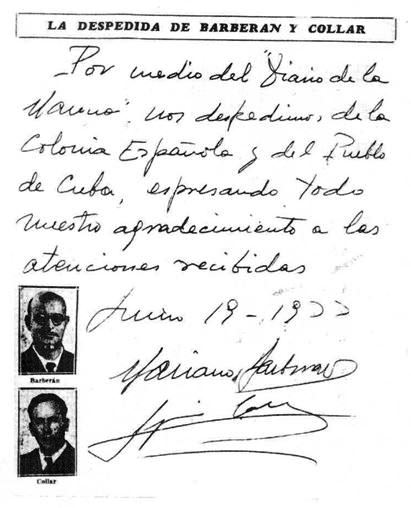 LA DESPEDIDA DE BARBERAN Y COLLAR
Por medio del "Diario de la
Marina" nos despedimos, de la
Colonia Española y del Pueblo
de Cuba, espresando todo
nuestro agradecimiento a las
atenciones recibidas
Junio 19-1933
Mariano Barberan
Barberán
Collar